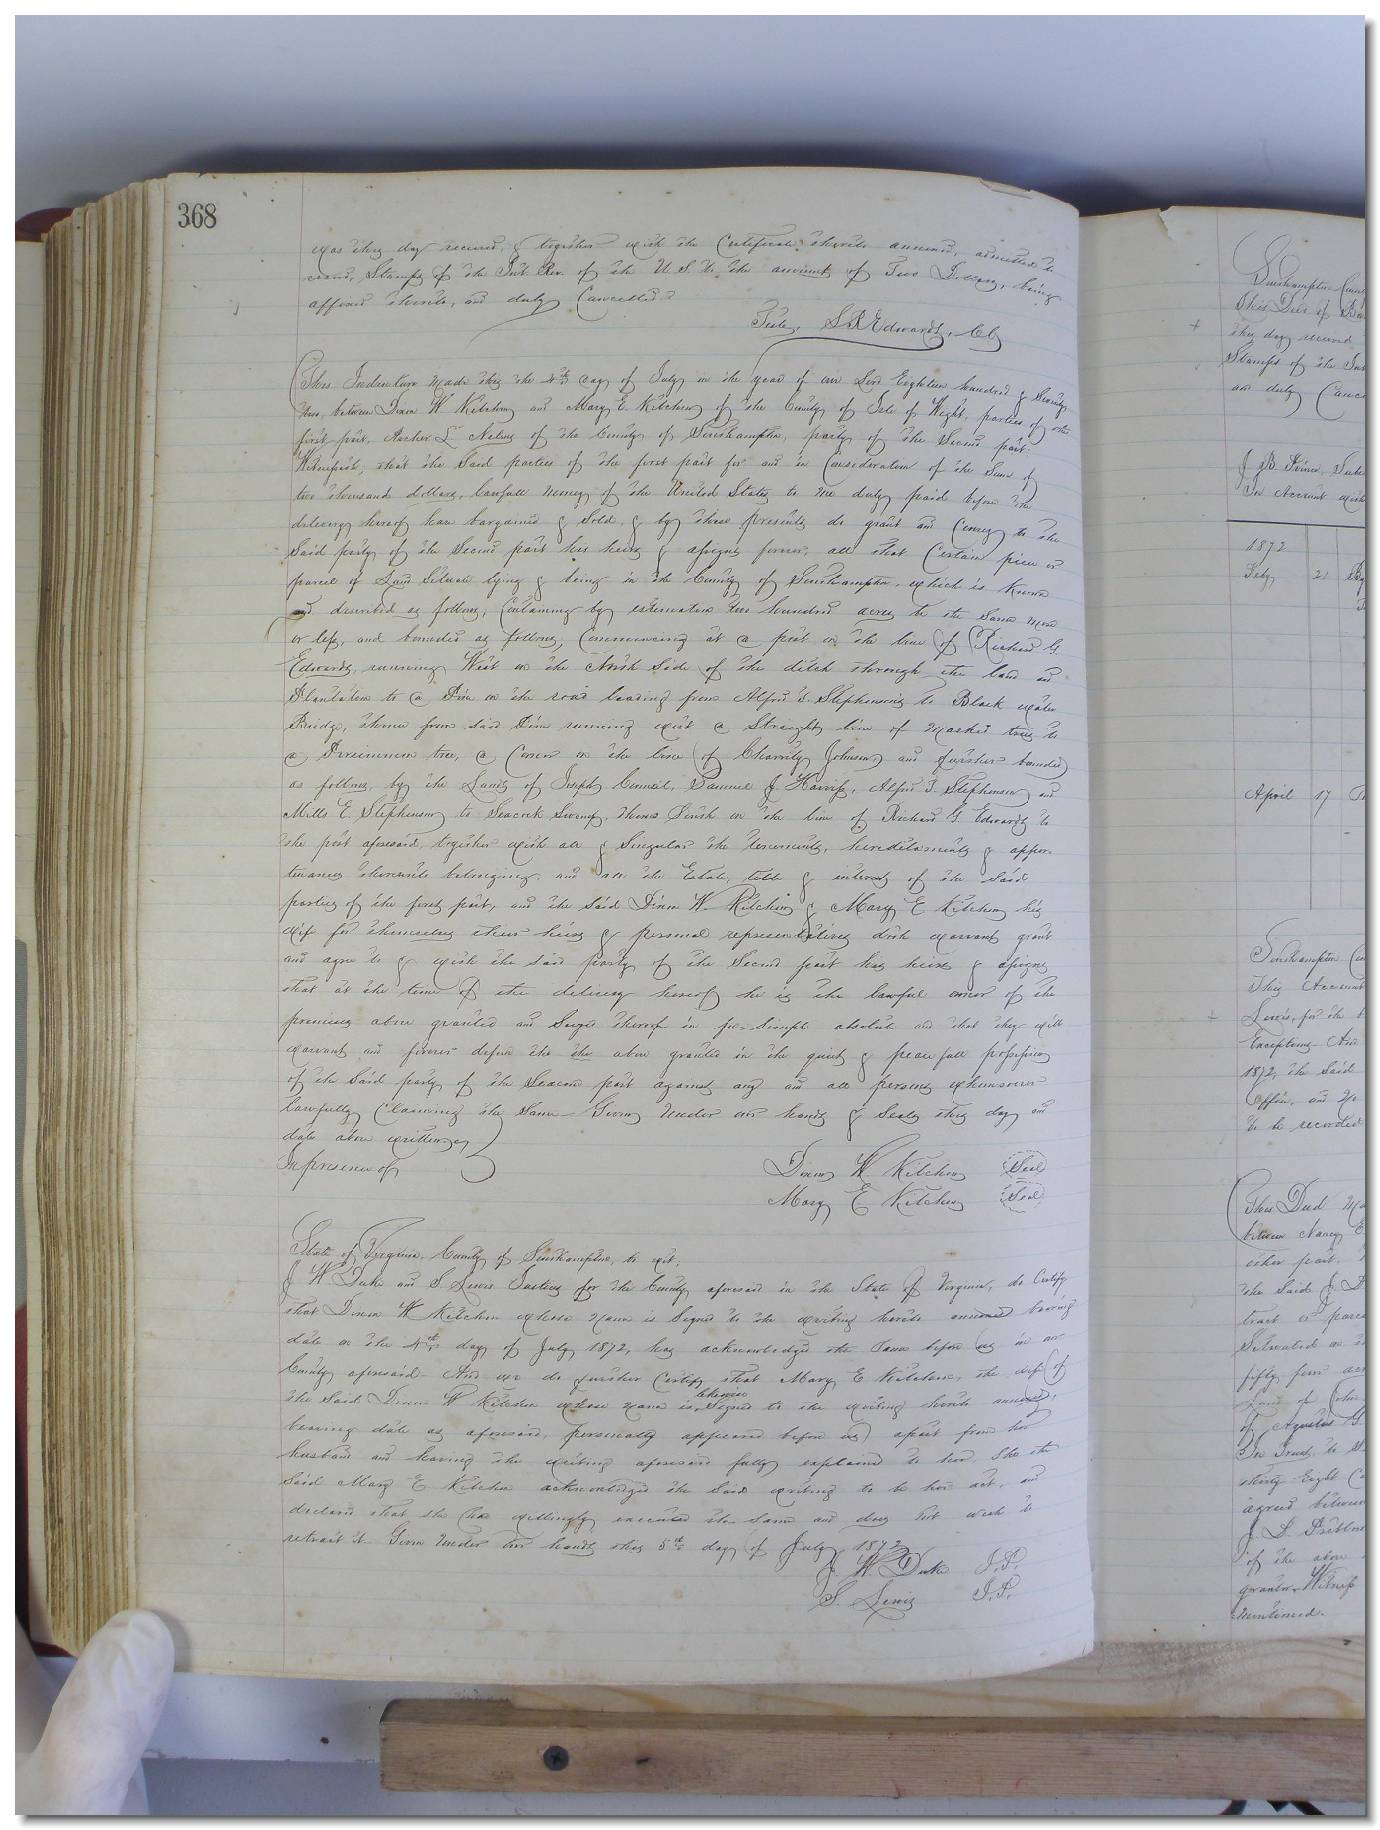 368
was this day received, & together with the Certificate thereto annexed, admitted to
record, Stamps of the Int. Rev. of the U.S. to the amount of Two Dollars, being
affixed thereto, and duly Cancelled
Teste, L R Edwards, Clk
This Indenture made this the 4th day of July in the year of our Lord Eighteen hundred & Seventy
two, between Dixon W Kitchen and Mary E. Kitchen of the County of Isle of Wight, parties of the
first part, Archer L of the County of Southampton, party of the Second part.
Witnesseth, that the Said parties of the first part for and in Consideration of the Sum of
two thousand dollars, lawfull money of the United States to me duly paid before the
delivery hereof have bargained & Sold, & by these presents do grant and Convey to the
Said party of the Second part his heirs & assigns forever, all that Certain piece or
parcel of Land Situate lying & being in the County of Southampton, which is known
and described as follows, Containing by estimation two hundred acres be the Same more
or less, and bounded as follows, Commencing at a post on the line of Richard G.
Edwards, running West on the North Side of the ditch through the land and
Plantation to a Pine on the road leading from Alfred T. Stephenson's to Black water
Bridge, thence from said Pine running with a Straight line of marked trees to
a Persimmon tree, a Corner on the line of Charrity Johnson and further bounded
as follows by the Lands of Joseph Council, Samuel J. Harriss, Alfred T. Stephenson and
Mills E. Stephenson to Seacock Swamp, thence South on the line of Richard G. Edwards to
the post aforesaid, together with all & Singular the tenements, hereditaments & appur-
tenances thereunto belonging, and all the Estate, title & interest of the Said
parties of the first part, and the Said Dixon W. Kitchen & Mary E Kitchen his
wife for themselves their heirs & personal representatives doth warrant grant
and agree to & with the Said party of the Second part his heirs & assigns
that at the time of the delivery hereof he is the lawful owner of the
premises above granted and Seized thereof in fee-Simple absolute and that they will
warrant and forever defend the the above granted in the quiet & peacefull possession
of the Said party of the Seacond part against any and all persons whomsoever
lawfully Claiming the Same. Given under our hands & Seals this day and
date above written
In presence of
Dixon W Kitchen Seal
Mary E Kitchen Seal
State of Virginia, County of Southampton, to wit;
J W Duke and S. Lewis Justices for the County aforesaid in the State of Virginia, do Certify
that Dixon W Kitchen whose name is Signed to the writing hereto annexed bearing
date on the 4th day of July 1872, has acknowledged the Same before us in our
County aforesaid. And we do further Certify that Mary E Kitchen, the wife of
likewise
the Said Dixon W Kitchen whose name is Signed to the writing hereto annexed,
bearing date as aforesaid, personally appeared before us apart from her
husband and having the writing aforesaid fully explained to her, She the
Said Mary E Kitchen acknowledged the Said writing to be her act, and
declared that she had willingly executed the Same and does not wish to
retract it. Given under our hands this 5th day of July 1872
J. W. Duke J.P.
S. Lewis J.P.
Southampton
This Deed of
this day received
Stamps of the Int
are duly Cance
In Account with
1872
Feby, 21
April 17
Southampton
This Account
Lewis, for the
Exceptions And
1872, the Said
Office, and no
to be recorded
This Deed
between Nancy E
other part,
the Said J.
tract or parce
Situated
fifty four acr
Land of John
of Agustus G.
In Trust, to
thirty Eight
agreed between
of the above
grantor. Witness
mentioned.